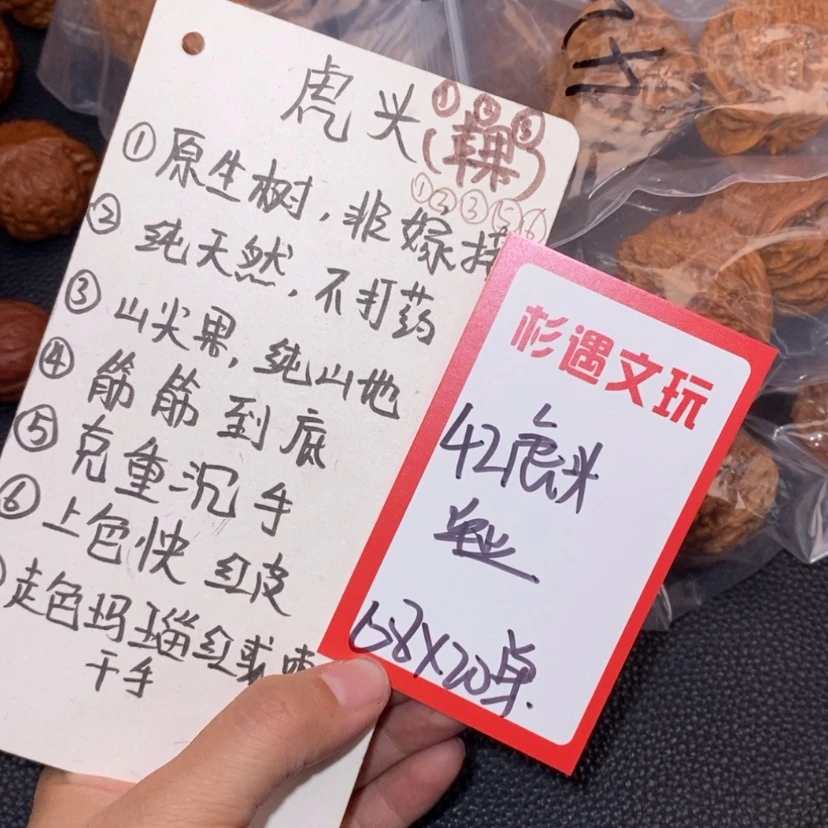 虎头
① ② ③
(裸)
① ② ③ ⑤ ⑥
① 原生树，非嫁接
② 纯天然，不打药
③ 山尖果，纯山地
④ 筋筋到底
⑤ 克重沉手
⑥ 上色快 红皮
走色玛瑙红或
干手
杉遇文玩
42虎头
68X20单